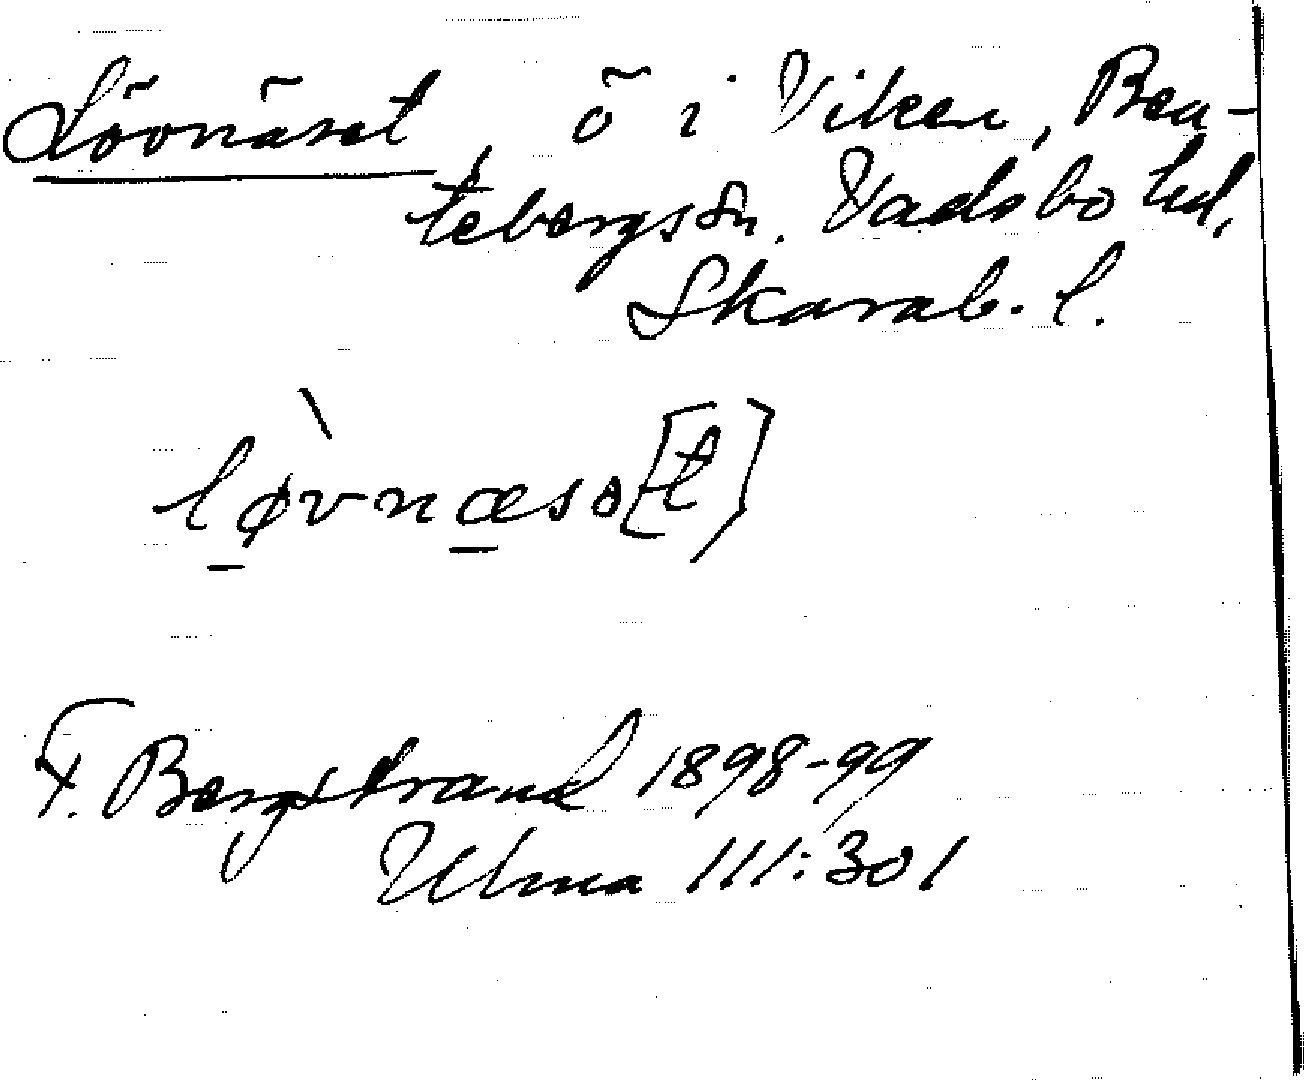 Lövnäset, ö i Viken, Ben-
tebergs sn. Vadsbo hd,
Skarab. l.
lø̱vnæ̱sə[t]
F. Bergstrand 1898-99
Ulma 111:301